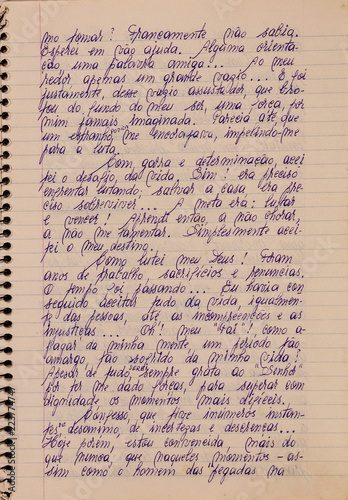 mo tomar! Francamente não sabia.
Esperei em vão ajuda. Alguma orienta-
ção, uma palavra amiga... Ao meu
redor apenas um grande vazio... E foi
justamente, desse vazio assustador, que bro-
tou do fundo do meu ser, uma força, por
mim jamais imaginada. Parecia até que
um estranho poder me encorajava, impelindo-me
para a luta.
Com garra e determinação, acei
tei o desafio, da vida. Sim! era preciso
enfrentar lutando; salvar a casa era pre-
ciso sobreviver... A meta era: lutar
e vencer! Aprendi então, a não chorar,
a não me lamentar. Simplesmente acei-
tei o meu destino.
Como lutei meu Deus! Foram
anos de trabalho, sacrifícios e renúncias.
O tempo foi passando... Eu havia con
seguido aceitar tudo da vida, igualmen-
te das pessoas, até as incompreenções e as
injustiças... Oh! meu "Pai"!, como a-
pagar da minha mente, um período tão
amargo, tão sofrido da minha vida!
Apesar de tudo, sou sempre grata ao "Senhor"
por ter me dado forças, para superar com
dignidade os momentos mais difíceis.
Confesso, que tive inúmeros instan-
tes de desânimo, de incertezas e descrenças...
Hoje porém, estou convencida, mais do
que nunca, que naqueles momentos - as-
sim como o homem das "pegadas na